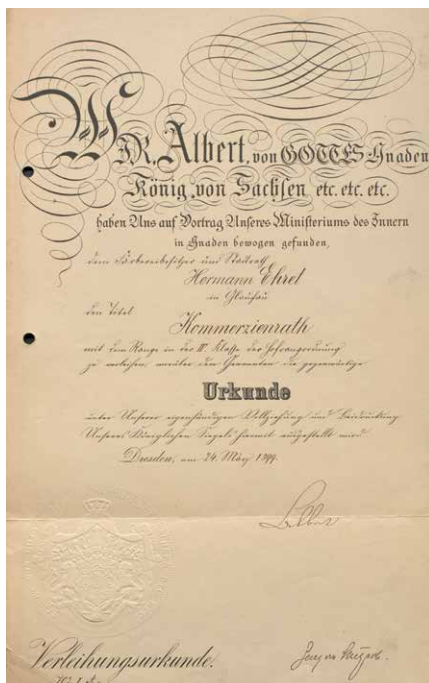 WIR, Albert, von GOTTES Gnaden
König von Sachsen etc. etc. etc.
haben Uns auf Vortrag Unseres Ministeriums des Innern
in Gnaden bewogen gefunden,
dem Färbereibesitzer und Stadtrath
Hermann Ehret
in Glauchau
den Titel
Kommerzienrath
mit dem Range in der IV. Klasse der Hofrangordnung
zu verleihen, worüber dem Genannten die gegenwärtige
Urkunde
unter Unserer eigenhändigen Vollziehung und Beidruckung
Unseres Königlichen Siegels hiermit ausgestellt wird.
Dresden, am 24. März 1899.
Albert
Verleihungsurkunde.